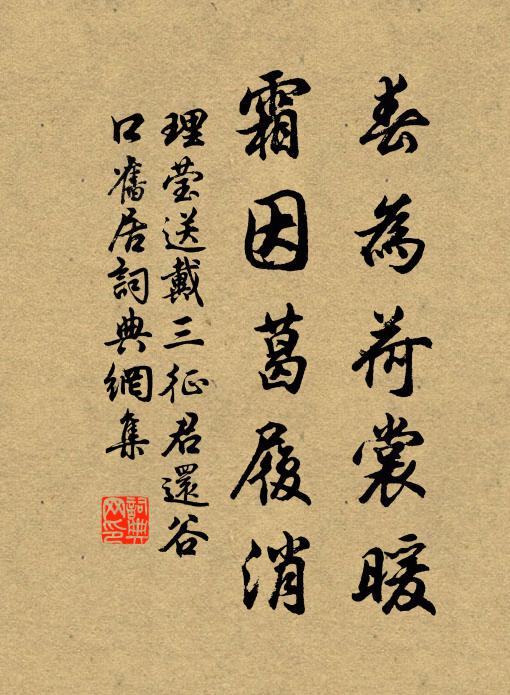 春為荷裳暖
霜因葛履消
理莹送戴三征君還谷
口舊居詞典網集
詞典
网印